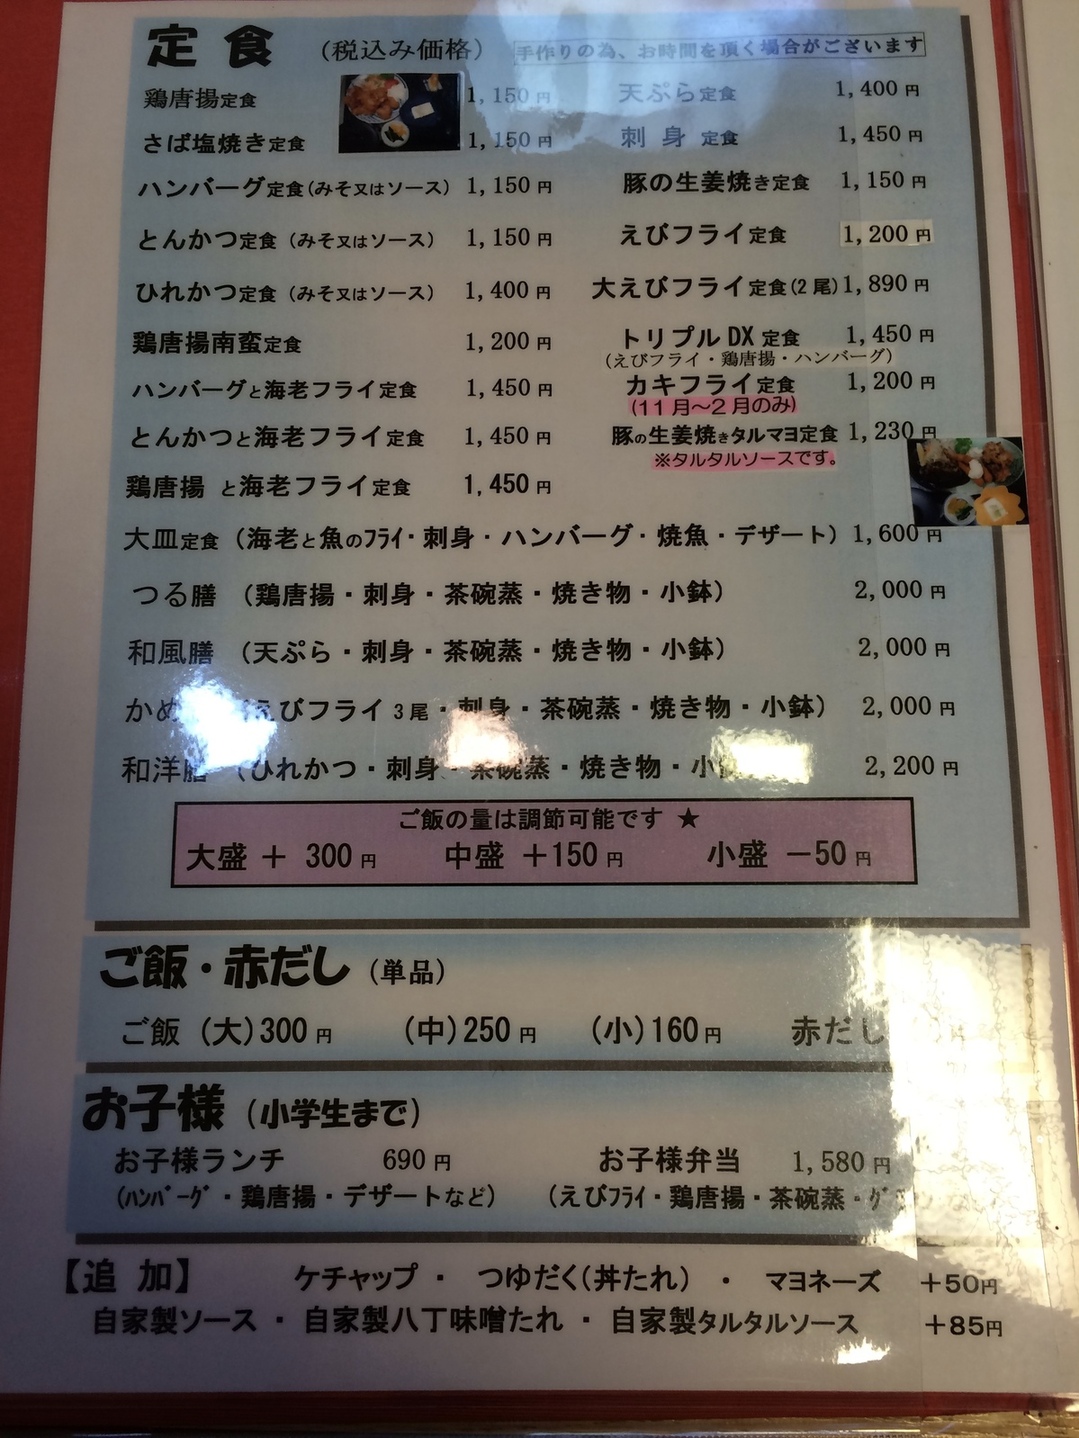 定食 (税込み価格) 手作りの為、お時間を頂く場合がございます
鶏唐揚定食 1,150円 天ぷら定食 1,400円
さば塩焼き定食 1,150円 刺身 定食 1,450円
ハンバーグ定食(みそ又はソース) 1,150円 豚の生姜焼き定食 1,150円
とんかつ定食 (みそ又はソース) 1,150円 えびフライ定食 1,200円
ひれかつ定食 (みそ又はソース) 1,400円 大えびフライ定食(2尾) 1,890円
鶏唐揚南蛮定食 1,200円 トリプルDX 定食 1,450円
(えびフライ・鶏唐揚・ハンバーグ)
ハンバーグと海老フライ定食 1,450円 カキフライ定食 1,200円
(11月~2月のみ)
とんかつと海老フライ定食 1,450円 豚の生姜焼きタルマヨ定食 1,230円
※タルタルソースです。
鶏唐揚 と海老フライ定食 1,450円
大皿定食 (海老と魚のフライ・刺身・ハンバーグ・焼魚・デザート) 1,600円
つる膳 (鶏唐揚・刺身・茶碗蒸・焼き物・小鉢) 2,000円
和風膳 (天ぷら・刺身・茶碗蒸・焼き物・小鉢) 2,000円
かめ えびフライ3尾・刺身・茶碗蒸・焼き物・小鉢) 2,000円
和洋膳 (ひれかつ・刺身・茶碗蒸・焼き物・小 2,200円
ご飯の量は調節可能です ★
大盛 + 300円 中盛 +150円 小盛 -50円
ご飯・赤だし (単品)
ご飯 (大)300円 (中)250円 (小)160円 赤だし
お子様 (小学生まで)
お子様ランチ 690円 お子様弁当 1,580円
(ハンバーグ・鶏唐揚・デザートなど) (えびフライ・鶏唐揚・茶碗蒸・
【追加】 ケチャップ ・ つゆだく(丼たれ) ・ マヨネーズ +50円
自家製ソース ・ 自家製八丁味噌たれ ・ 自家製タルタルソース +85円